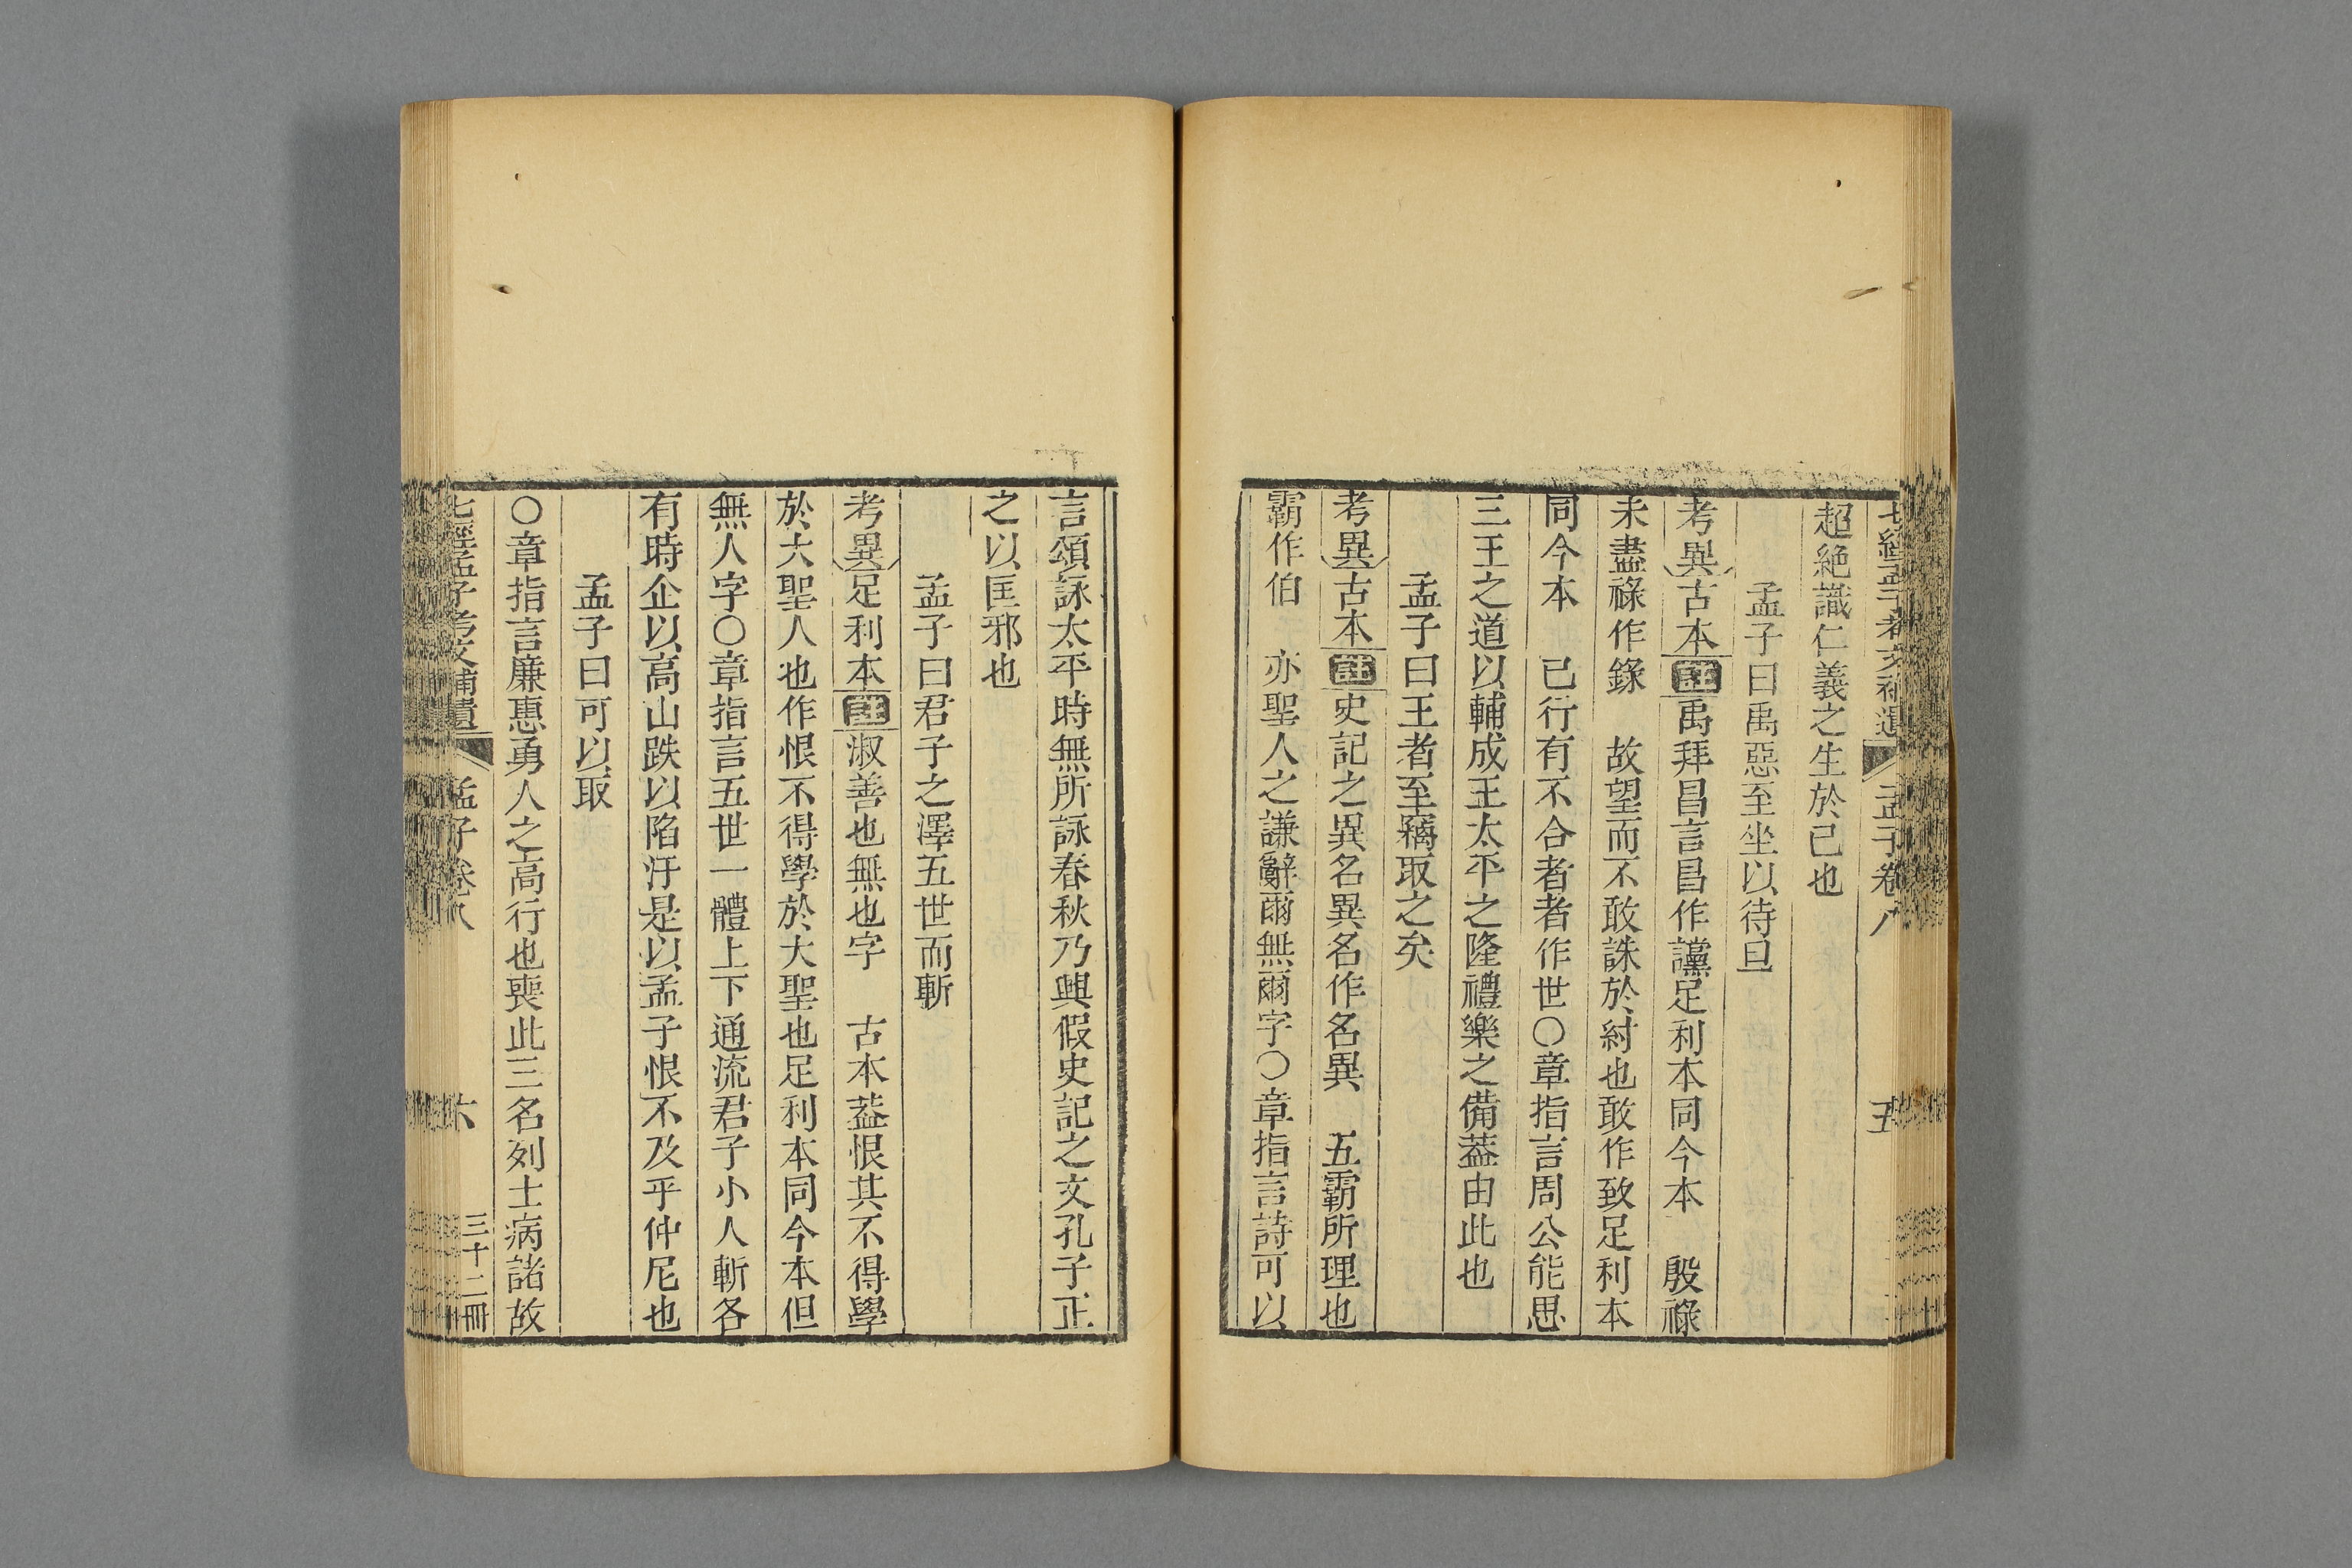 七經孟子考文補遺 孟子卷八 五
超絶識仁義之生於己也
孟子曰禹惡至坐以待旦
考異古本註禹拜昌言昌作讜足利本同今本 殷祿
未盡祿作錄 故望而不敢誅於紂也敢作致足利本
同今本 已行有不合者者作世○章指言周公能思
三王之道以輔成王太平之隆禮樂之備葢由此也
孟子曰王者至竊取之矣
考異古本註史記之異名異名作名異 五霸所理也
霸作伯 亦聖人之謙辭爾無爾字○章指言詩可以
言頌詠太平時無所詠春秋乃興假史記之文孔子正
之以匡邪也
孟子曰君子之澤五世而斬
考異足利本註淑善也無也字 古本葢恨其不得學
於大聖人也作恨不得學於大聖也足利本同今本但
無人字○章指言五世一體上下通流君子小人斬各
有時企以高山跌以陷汙是以孟子恨不及乎仲尼也
孟子曰可以取
○章指言廉惠勇人之高行也喪此三名列士病諸故
七經孟子考文補遺 孟子卷八 六 三十二冊